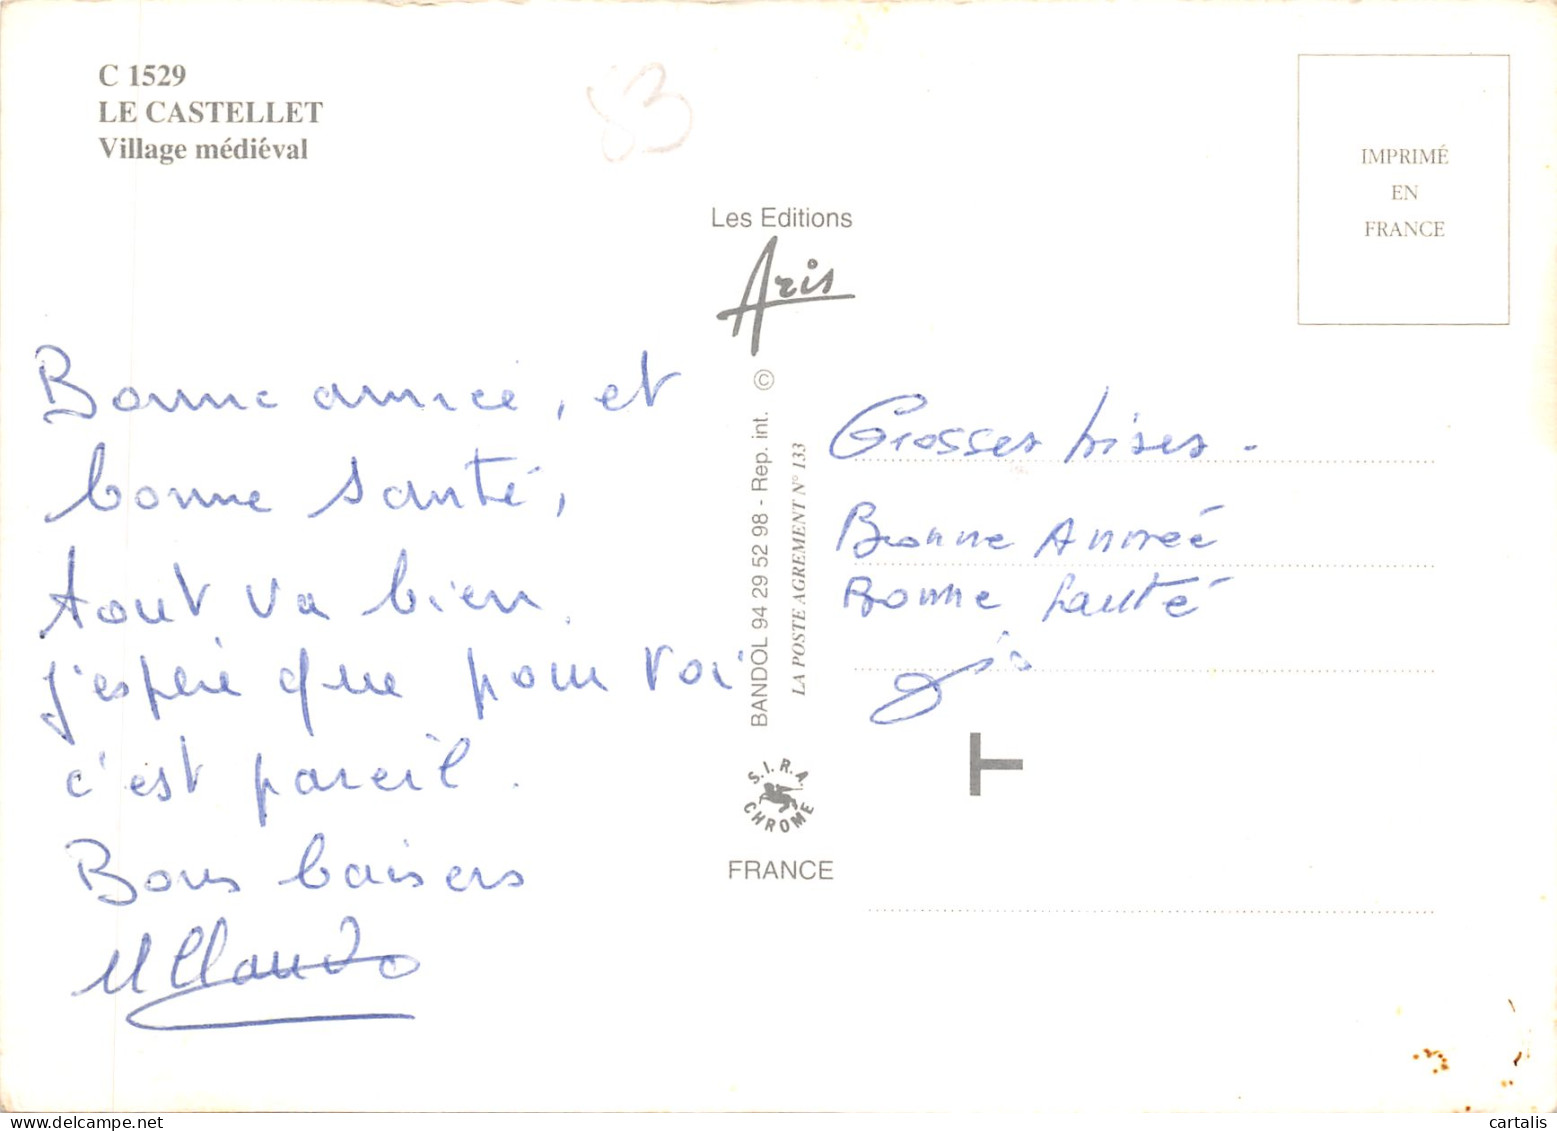 C 1529
LE CASTELLET
Village médiéval
83
IMPRIMÉ
EN
FRANCE
Les Editions
Aris
Bonne année, et
bonne santé,
tout va bien.
j'espère que pour toi
c'est pareil.
Bons baisers
©
BANDOL 94 29 52 98 - Rep. int.
LA POSTE AGREMENT N° 133
S.I.R.A.
CHROME
FRANCE
Grosses bises.
Bonne Année
Bonne Santé
T
cartalis